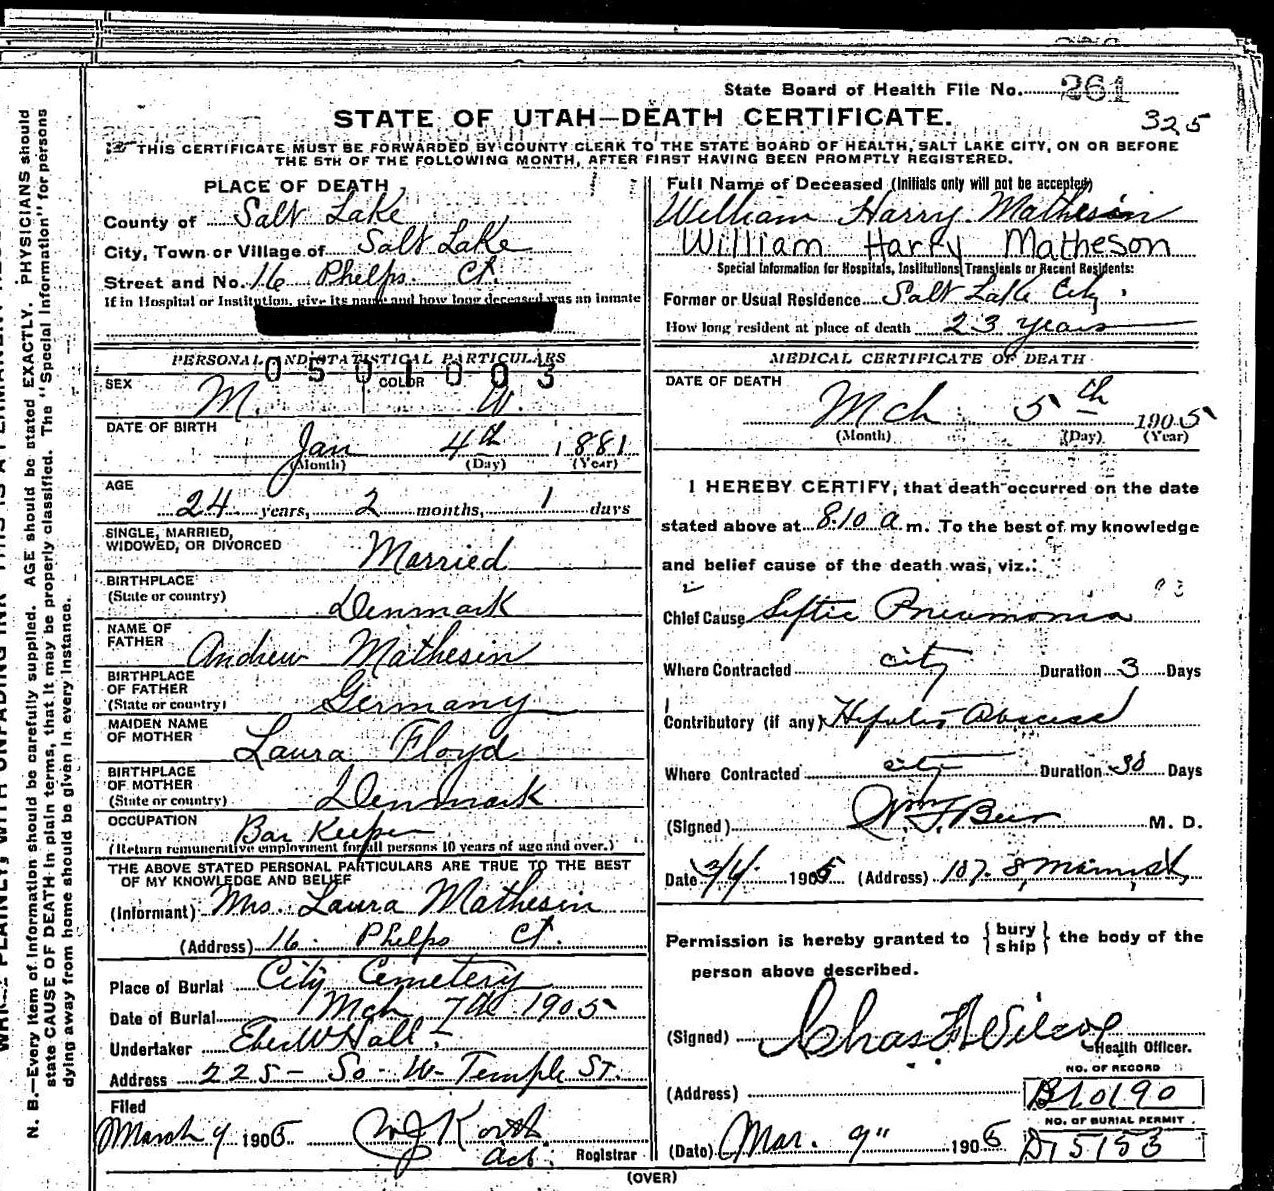 State Board of Health File No. 261
325
STATE OF UTAH—DEATH CERTIFICATE.
THIS CERTIFICATE MUST BE FORWARDED BY COUNTY CLERK TO THE STATE BOARD OF HEALTH, SALT LAKE CITY, ON OR BEFORE
THE 5TH OF THE FOLLOWING MONTH, AFTER FIRST HAVING BEEN PROMPTLY REGISTERED.
PLACE OF DEATH
County of Salt Lake
City, Town or Village of Salt Lake
Street and No. 16 Phelps Ct.
If in Hospital or Institution, give its name and how long deceased was an inmate
PERSONAL AND STATISTICAL PARTICULARS
0501003
SEX M. COLOR W.
DATE OF BIRTH Jan 4th 1881
(Month) (Day) (Year)
AGE
24 years, 2 months, 1 days
SINGLE, MARRIED,
WIDOWED, OR DIVORCED Married
BIRTHPLACE
(State or country) Denmark
NAME OF
FATHER Andrew Mathesin
BIRTHPLACE
OF FATHER
(State or country) Germany
MAIDEN NAME
OF MOTHER Laura Floyd
BIRTHPLACE
OF MOTHER
(State or country) Denmark
OCCUPATION Bar Keeper
(Return remunerative employment for all persons 10 years of age and over.)
THE ABOVE STATED PERSONAL PARTICULARS ARE TRUE TO THE BEST
OF MY KNOWLEDGE AND BELIEF
(Informant) Mrs. Laura Mathesin
(Address) 16. Phelps Ct.
Place of Burial City Cemetery
Date of Burial Mch 7th 1905
Undertaker Eber W Hall.
Address 225- So- W- Temple St.
Filed
March 9 1905
Act. Registrar
Full Name of Deceased (Initials only will not be accepted)
William Harry Mathesin
William Harry Matheson
Special Information for Hospitals, Institutions, Transients or Recent Residents:
Former or Usual Residence Salt Lake City.
How long resident at place of death 23 years
MEDICAL CERTIFICATE OF DEATH
DATE OF DEATH
Mch 5th 1905
(Month) (Day) (Year)
I HEREBY CERTIFY, that death occurred on the date
stated above at 8.10 a m. To the best of my knowledge
and belief cause of the death was, viz.:
Chief Cause Septic Pneumonia
Where Contracted city Duration 3 Days
Contributory (if any) Abscess
Where Contracted city Duration 38 Days
(Signed) Wm F Beer M. D.
Date 1905 (Address) 107. S, Main st
Permission is hereby granted to {bury ship} the body of the
person above described.
(Signed) Chas F Wilcox
Health Officer.
NO. OF RECORD
(Address) B10190
NO. OF BURIAL PERMIT
(Date) Mar. 9" 1905 D15153
(OVER)
N. B.—Every item of information should be carefully supplied. AGE should be stated EXACTLY. PHYSICIANS should
state CAUSE OF DEATH in plain terms, that it may be properly classified. The "Special Information" for persons
dying away from home should be given in every instance.